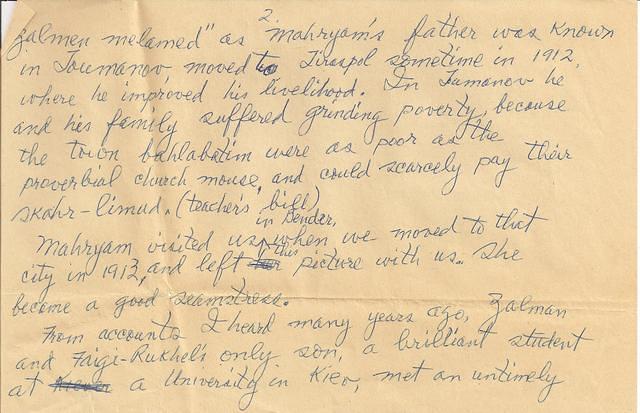 2
Zalmen melamed" as Mahryam's father was known
in Toumanov, moved to Tiraspol sometime in 1912,
where he improved his livelihood. In Tumanov he
and his family suffered grinding poverty, because
the town bahlabatim were as poor as the
proverbial church mouse, and could scarcely pay their
skahr-limud. (teacher's bill)
in Bender,
Mahryam visited us, when we moved to that
this
city in 1913, and left picture with us. She
became a good seamstress.
From accounts I heard many years ago, Zalman
and Faigi-Rukhel's only son, a brilliant student
at a University in Kiev, met an untimely